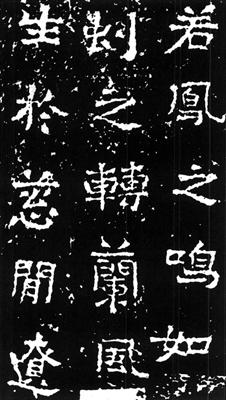 若鳳之鳴如
虬之轉蘭風
生於慈閒遼